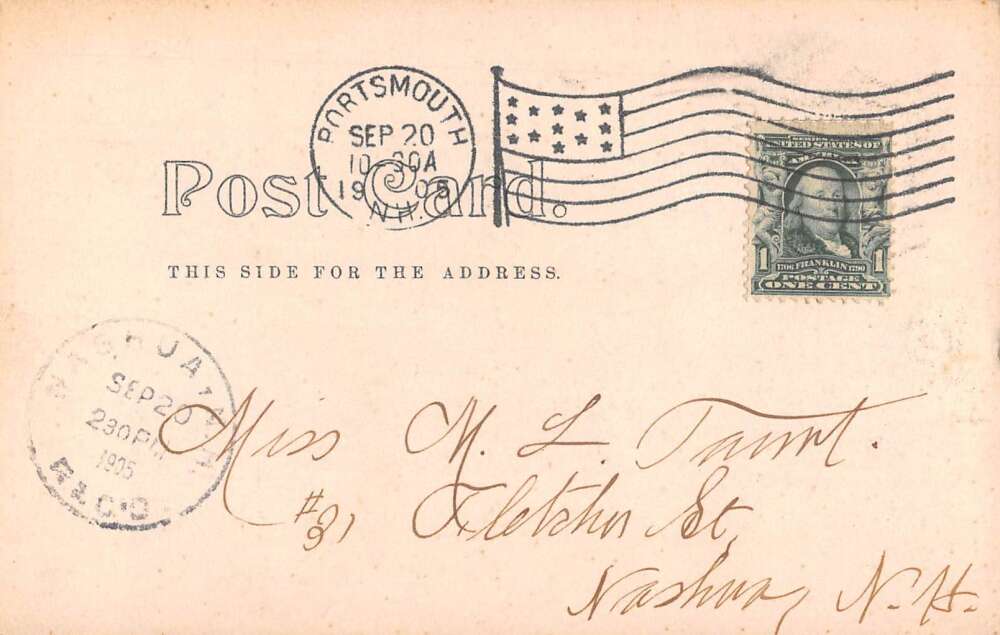 PORTSMOUTH
SEP 20
10-30A
1905
N.H.
SERIES
UNITED STATES OF
AMERICA
1 1706 FRANKLIN 1790 1
POSTAGE
ONE CENT
Post Card.
THIS SIDE FOR THE ADDRESS.
NASHUA, N.H.
SEP 20
230PM
1905
REC'D
Miss M. L.
#31 Fletcher St,
Nashua, N.H.